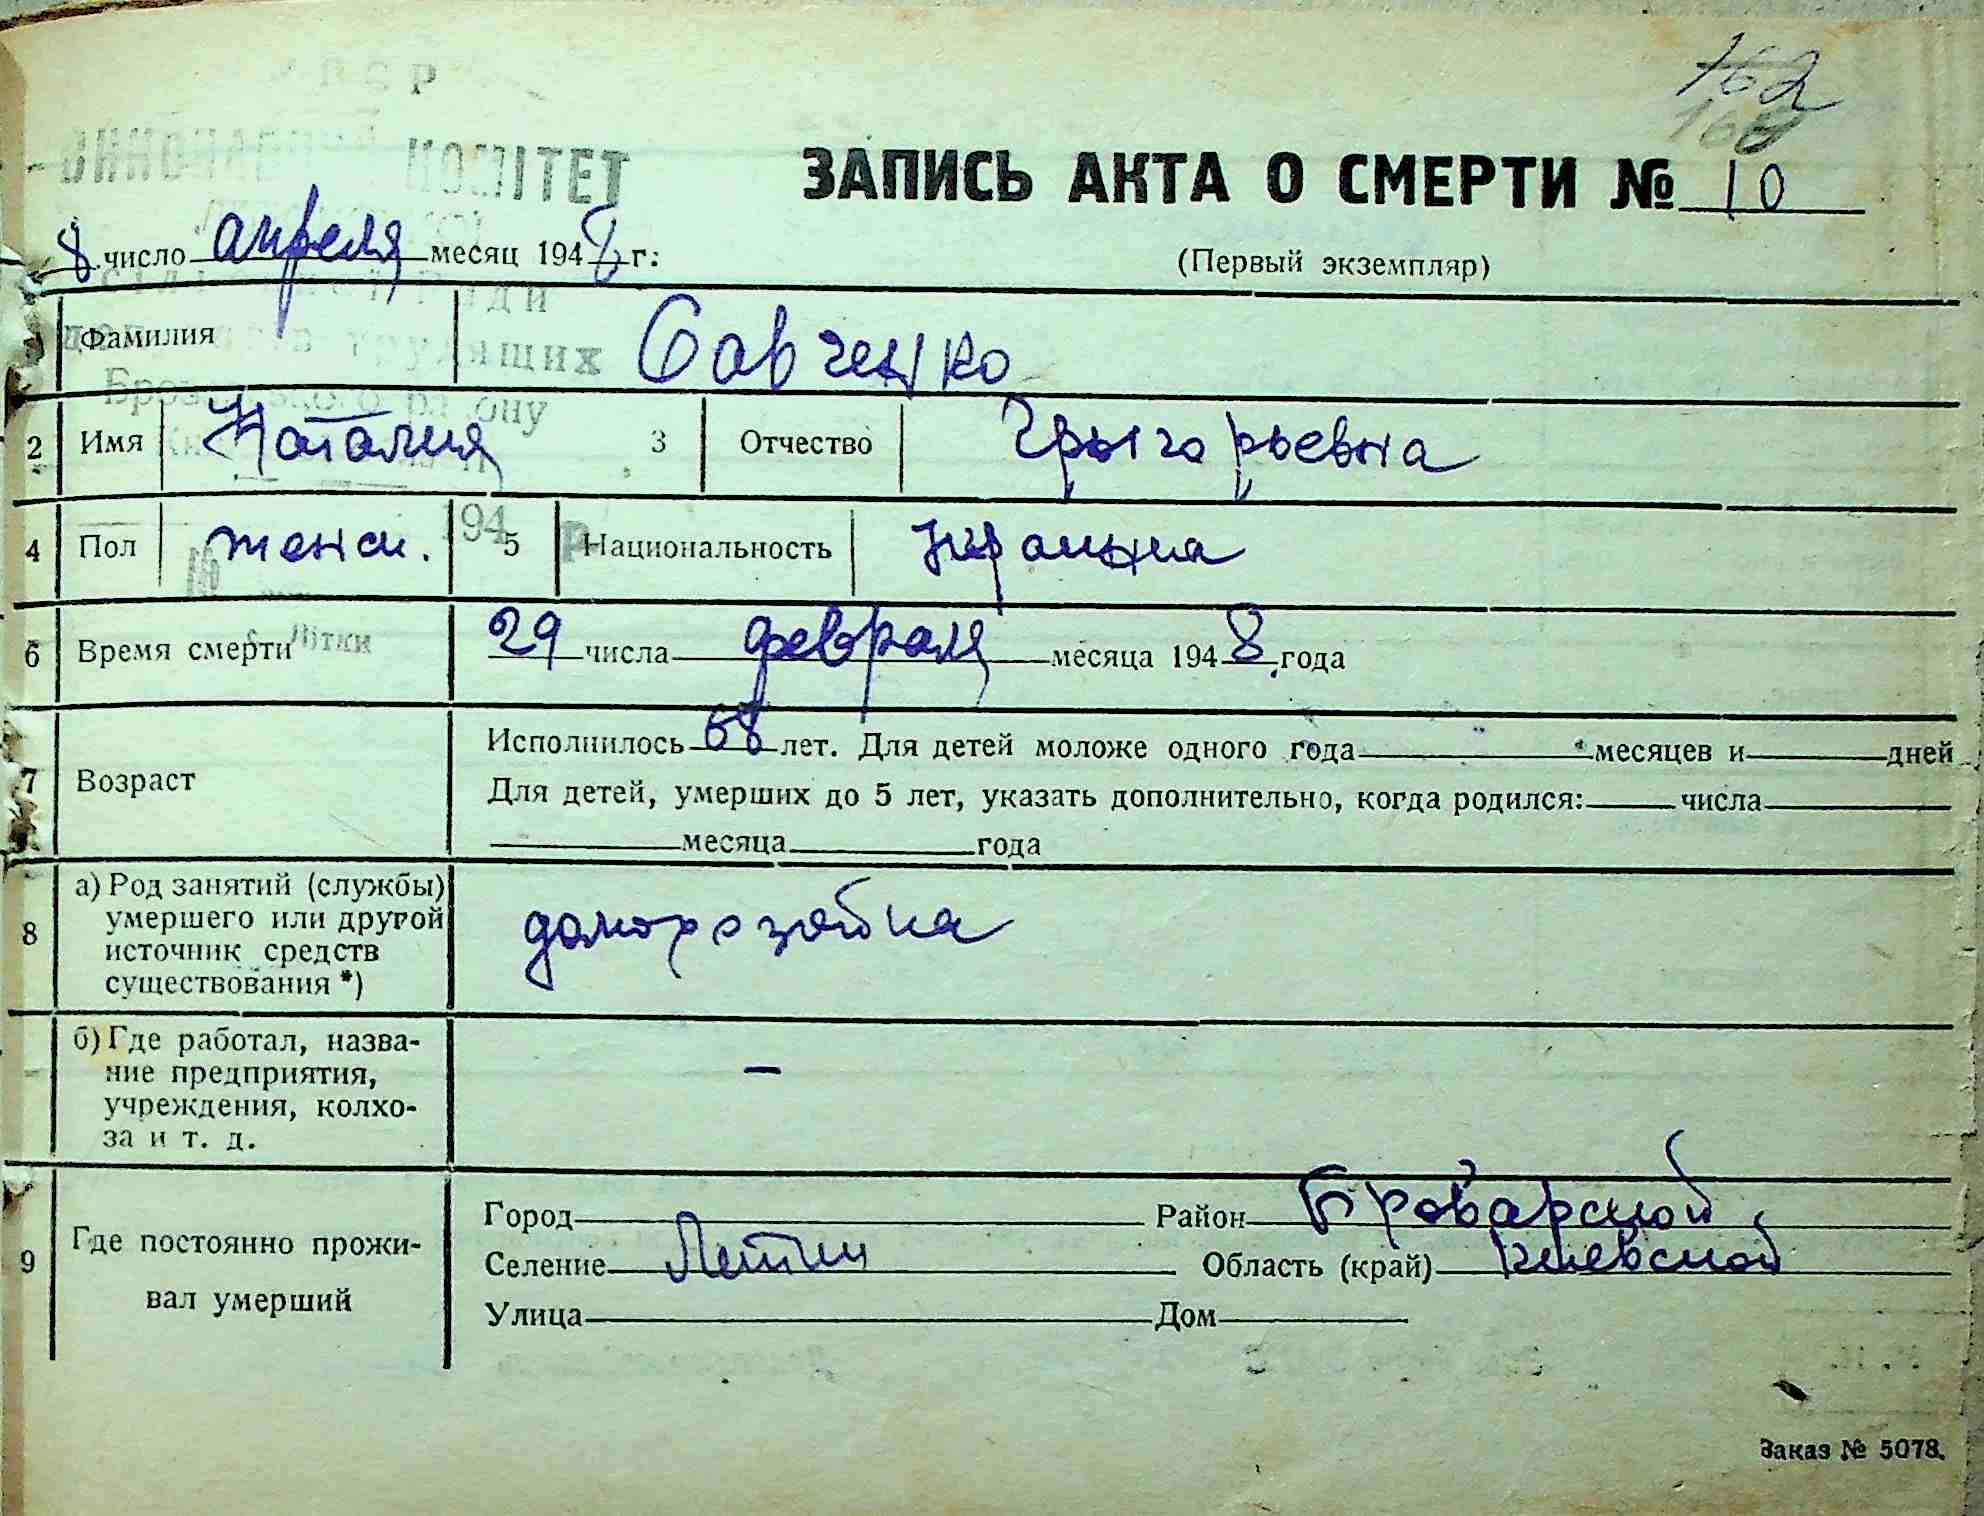 162
160
КОМІТЕТ
ЗАПИСЬ АКТА О СМЕРТИ № 10
8 число апреля месяц 1948 г.
(Первый экземпляр)
Фамилия Савченко
2 Имя Наталия 3 Отчество Грыгорьевна
194 р
4 Пол женск. 5 Национальность украинка
6 Время смерти 29 числа февраля месяца 1948 года
Літки
7 Возраст Исполнилось 68 лет. Для детей моложе одного года месяцев и дней
Для детей, умерших до 5 лет, указать дополнительно, когда родился: числа
месяца года
8 а) Род занятий (службы)
умершего или другой
источник средств
существования *)
домохозяйка
б) Где работал, назва-
ние предприятия,
учреждения, колхо-
за и т. д.
–
9 Где постоянно прожи-
вал умерший
Город Район Броварской
Селение Летки Область (край) Киевской
Улица Дом
Заказ № 5078.